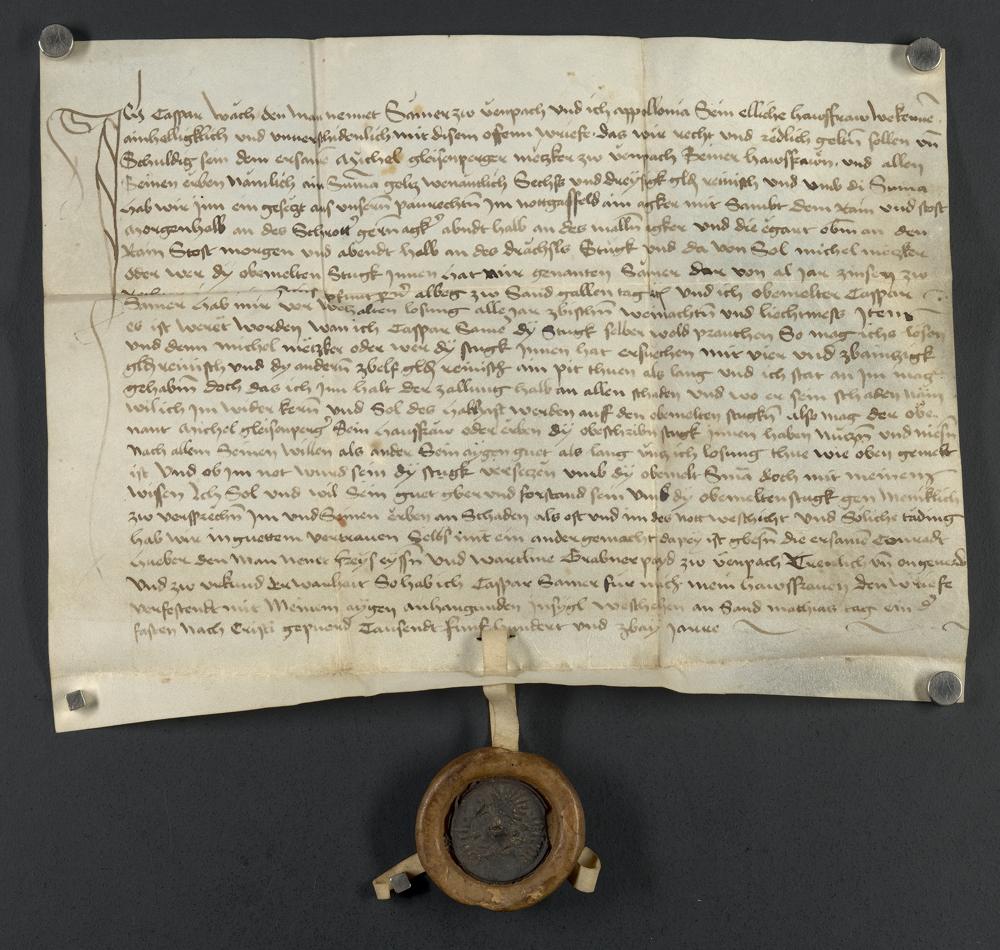 Ich Caspar wach den man nennet Samer zw venpach vnd ich appollonia Sein elliche hawsfraw wekenne
ainhelligklich vnd vnnerschidenlich mit disem offenn brieff das wir recht vnd redlich gelten sollen vn
Schuldig sein dem ersame Michel gleisenperger metzker zw venpach Seiner hawsfrawn vnd allen
Seinen erben Namlich ain Suma geltz wenantlich Sechss vnd dreyssigk gld reinisch vnd vmb di Suma
hab wir Im ein gesetzt aus vnsern paurechtn Im nottgassfeld ain agker mit Sambt dem Rain vnd stost
Morgenhalb an des Schrott gern agker abendt halb an des malln agker vnd die egart obm an den
Rain Stost morgen vnd abendt halb an des drachsls Stugk vnd da von Sol michel metzker
oder wer dy obemelten Stugk Innen hat mir genanten Samer dar von al jar zinsen zw
albeg zw Sand gallen tag vnd ich obemelter Caspar
Samer hab mir vor behalten losung alle jar zbischn weinachtn vnd liechtmess Item
es ist weret worden wan ich Caspar Same dy Stugk selber wold prauchen So mag ichs losen
vnd denn michel metzker oder wer dy stugk Innen hat ersuechen mit vier vnd zbainzigk
gld reinisch vnd dy andern zbelf gld reinisch ain pit thuen als lang vnd ich stat an Im mag
gehabm doch das ich Im halt der zallung halb an allen schaden vnd wo er sein schaden nam
wil ich Im wider kern vnd Sol des habhaft werden auff den obemelten stugkn also mag der obe
nant Michel gleisenperger Sein hausfraw oder erben dy obeschribn stugk Innen haben nutzn vnd niesn
Nach allem Seinen willen als ander Sein aygen guet als lang vntz ich losung thue wie oben gemelt
ist Vnd ob im not wurd sein dy stugk versetzen vmb dy obemelt Suma doch mit meinem
wissen Ich Sol vnd wil Sein guet gber vnd forstand sein vmb dy obemelten stugk gen Meniklich
zw versprechn Im vnd Seinen erben an Schaden als oft vnd im des nott weschicht Vnd Soliche tading
hab wir in guettem vertrauen Selbs mit ein ander gemacht dapey ist gbesn die ersame Conradt
hueber den man nent freyseyssn vnd wartlme Grabner payd zw venpach Trewlich vn ongeuerd
Vnd zw vrkund der warhait So hab ich Caspar Samer fur mich mein hawsfrawen den brieffe
verfestendt mit Meinem aygen anhangunden Insygl weschehen an Sand mathias tag ein der
fasten Nach Cristi gepuerd Tausendt funfhundert vnd zbay Jarre